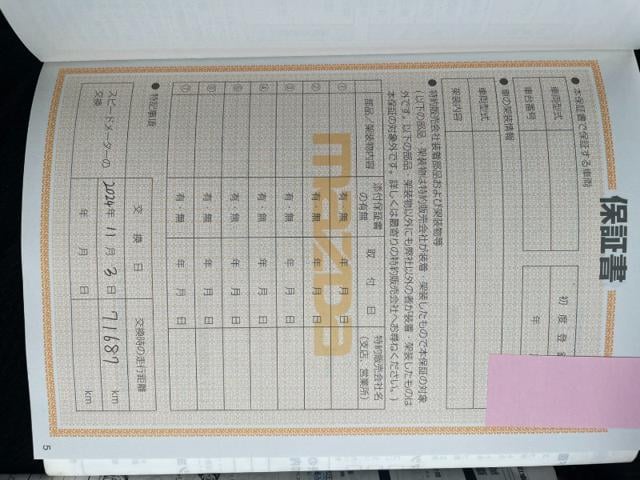 保証書
●本保証書で保証する車両
車両型式
車台番号
初度登
年
●車の架装情報
車両型式
架装内容
●特約販売会社装着部品および架装物等
(以下の部品・架装物は特約販売会社が装着・架装したもので本保証の対象
外です。以下の部品・架装物以外にも弊社以外の者が装着・架装したものは
本保証の対象外です。詳しくは最寄りの特約販売会社へお尋ねください。)
部品/架装物内容 添付保証書の有無 取付日 特約販売会社名(支店、営業所)
① 有・無 年 月 日
② 有・無 年 月 日
③ 有・無 年 月 日
④ 有・無 年 月 日
⑤ 有・無 年 月 日
⑥ 有・無 年 月 日
⑦ 有・無 年 月 日
mazda
●特記事項
スピードメーターの交換 交換日 交換時の走行距離
2024年 11月 3日 71687 km
年 月 日 km
5